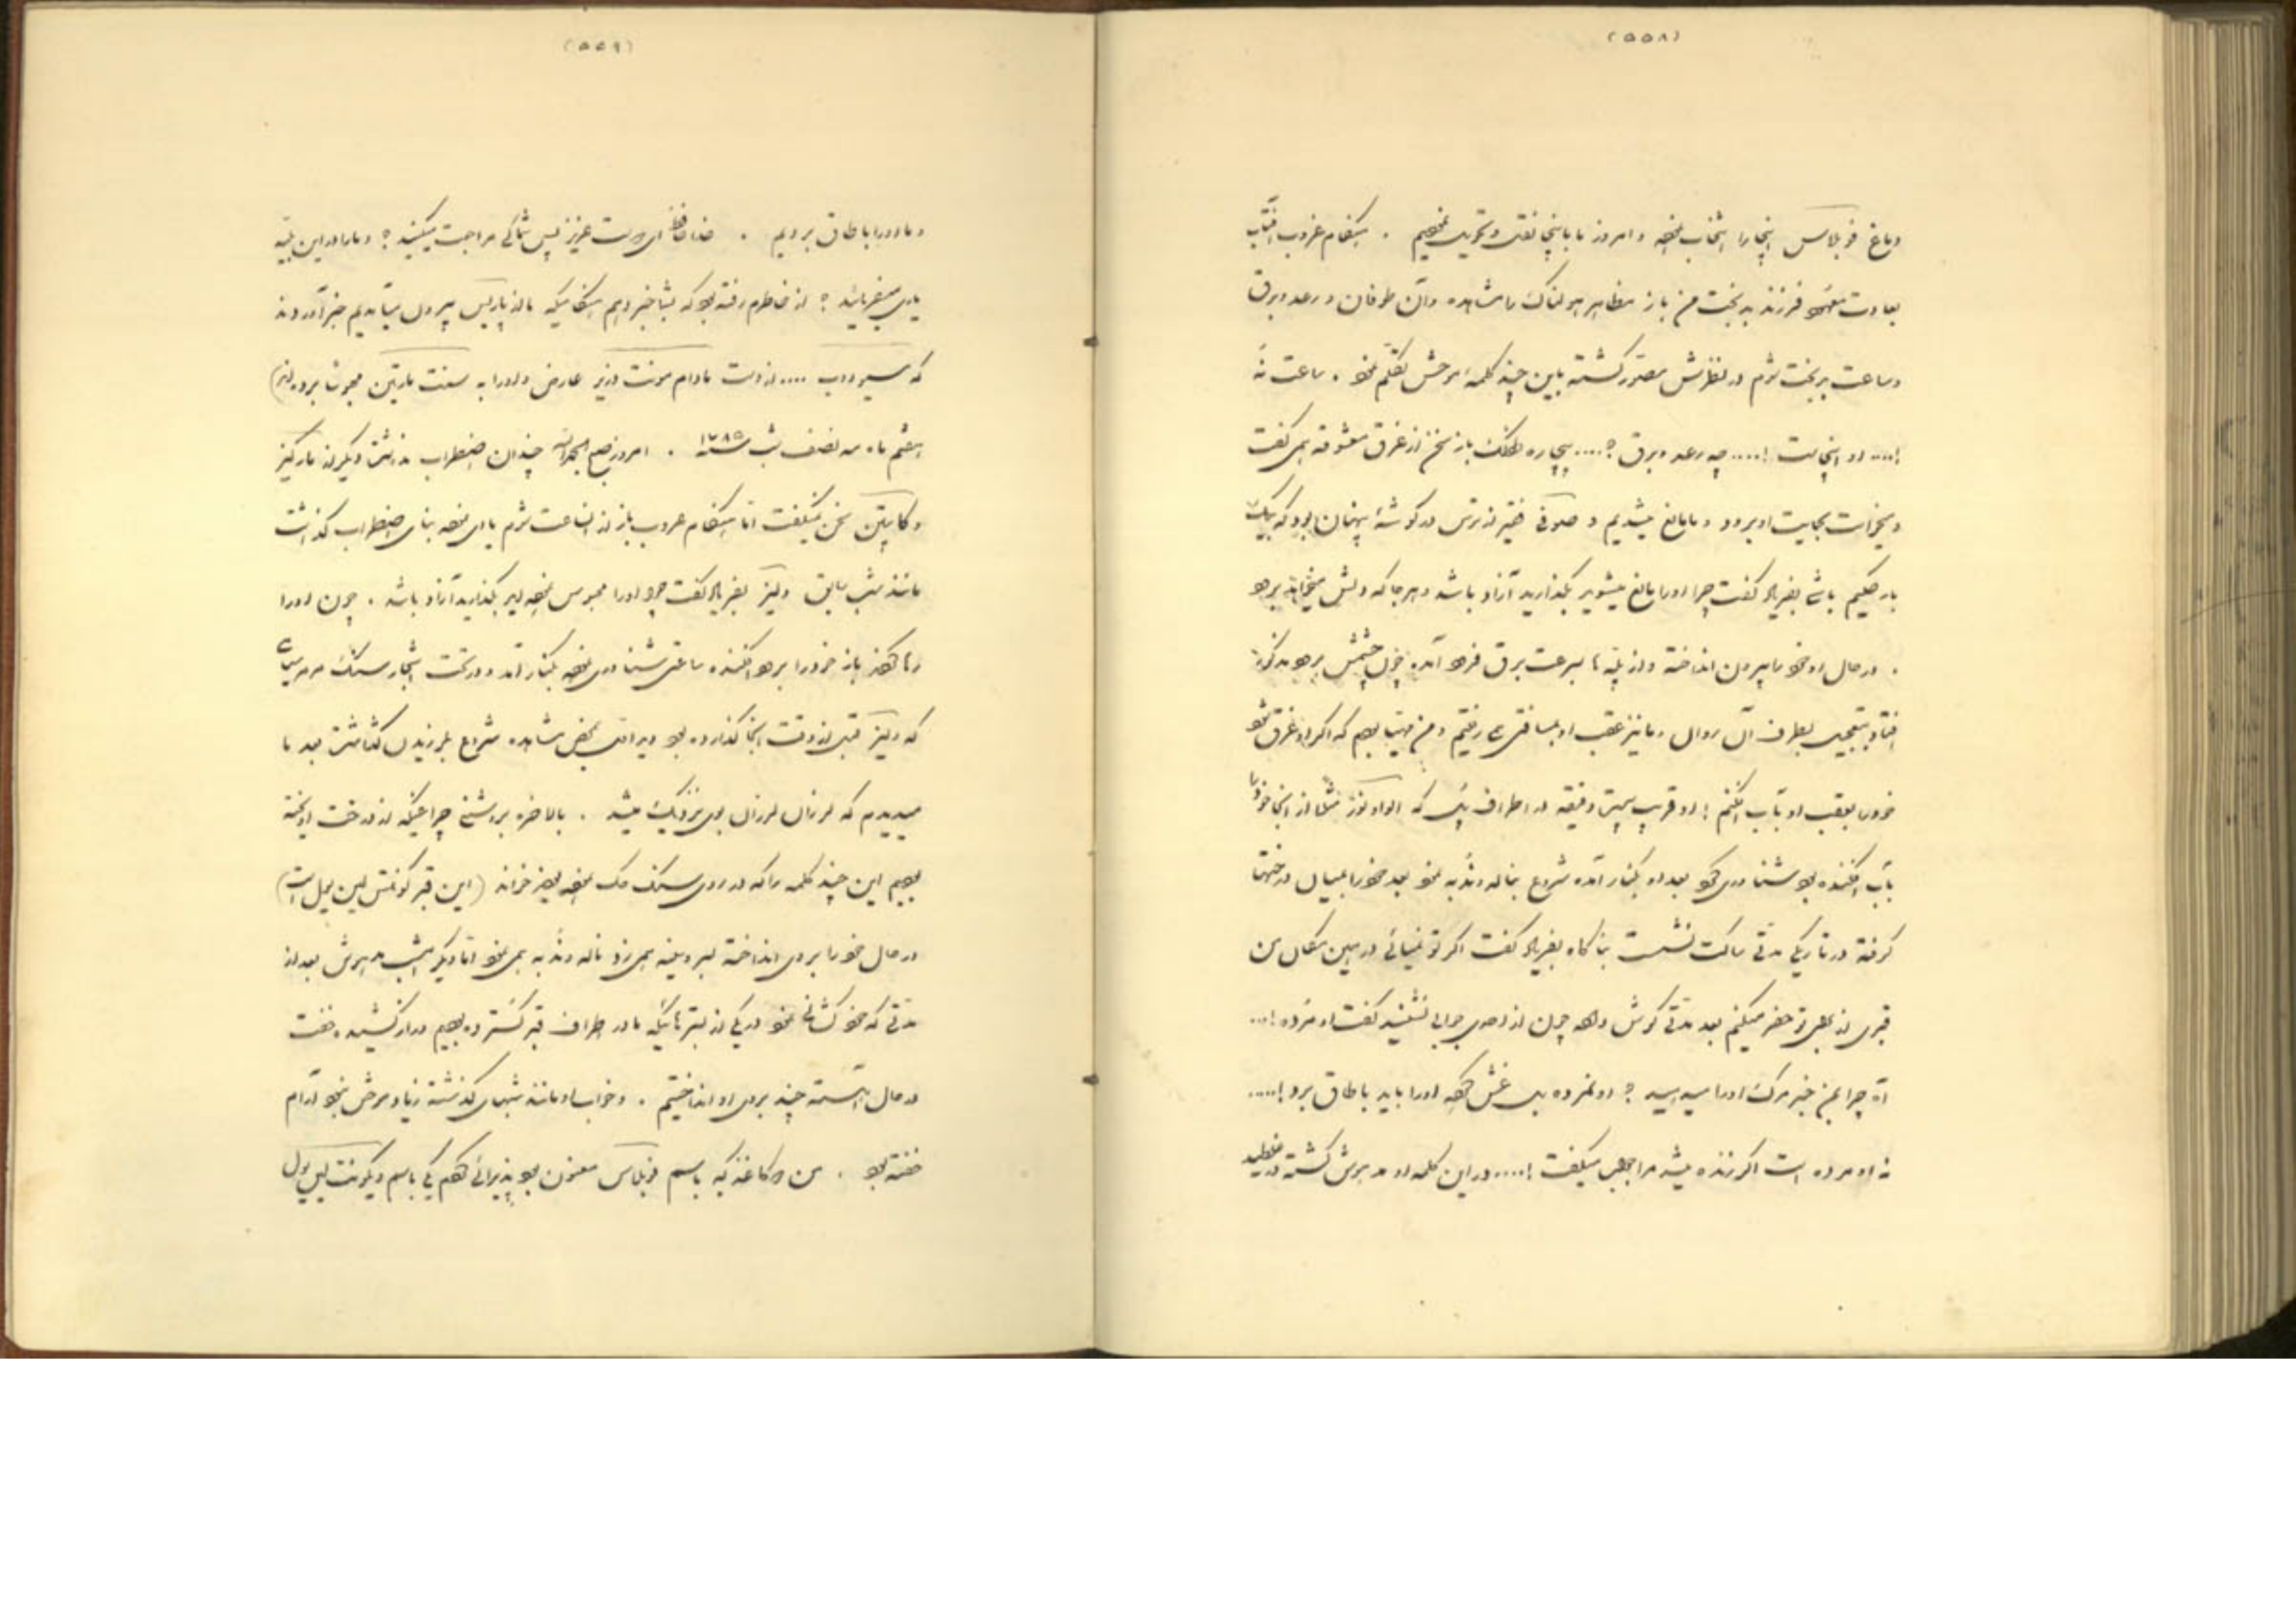 (۵۵۸)
و باغ فونبلاس اینجا را انتخاب نموده و امروز ما باینجا نقل و تحویل نمودیم . هنگام غروب آفتاب
بعادت معهود فرزند بدبخت من باز مظاهر هولناک را مشاهده و آن طوفان و رعد و برق
و ساعت بدبخت شوم در نظرش مصور گشته باین چند کلمه موحش تکلم نمود . ساعت نه
!.... او اینجاست !.... چه رعد و برق ؟.... بیچاره طفلک باز سخن از غرق معشوقه همی گفت
و میخواست بحمایت او برود و ما مانع میشدیم و صوفی فقیر از ترس در گوشهٔ پنهان بود که یک
بار حکیم باشی بفریاد گفت چرا او را مانع میشوید بگذارید آزاد باشد و هر جا که دلش میخواهد برود
. در حال او خود را بیرون انداخته و از پله ها بسرعت برق فرود آمده چون چشمش برود مذکور
افتاد بتعجیل بطرف آن روان و ما نیز عقب او بمسافتی می رفتیم و من مهیا بودم که اگر او غرق شود
خود را بعقب او بآب افکنم ! او قریب بیست دقیقه در اطراف پلی که الواد نوز مثلا از آنجا خود را
بآب افکنده بود شناوری کرد بعد او بکنار آمده شروع بناله و ندبه نمود بعد خود را بمیان درختها
گرفته در تاریکی مدتی ساکت نشست بناگاه بفریاد گفت اگر تو نمیائی در همین مکان من
قبری از برای تو حفر میکنم بعد مدتی گوش داده چون از احدی جوابی نشنید گفت او مرده !...
آه چرا بمن خبر مرگ او را میدهید ؟ او نمرده بل غش کرده او را باید باطاق برد !.....
نه او مرده است اگر زنده میشد مرا جواب میگفت !.... در این کلمه او مدهوش گشته در غلطید
(۵۵۹)
و ما او را باطاق بردیم . خدا حافظ ای دوست عزیز پس شما کی مراجعت میکنید ؟ و ما را در این بلیه
یاری میفرمائید ؟ از خاطرم رفته بود که بشما خبر دهم هنگامیکه ما از پاریس بیرون میآمدیم خبر آوردند
که مسیو دوب .... از دست مادام مونت وزیر عارض و او را به سنت مارتین محبوسا برده اند)
هشتم ماه مه نصف شب سنه ۱۷۸۵ . امروز صبح الحمدلله چندان اضطراب نداشت دیگر از مارکیز
و کاپیتن سخن نمیگفت اما هنگام غروب باز از الساعت شوم یادی نموده بنای اضطراب گذاشت
مانند شب سابق ولیز بفریاد گفت چرا او را محبوس نموده اید بگذارید آزاد باشد . چون او را
رها کردند باز خود را برود افکنده ساعتی شناوری نموده بکنار آمد و در تحت اشجار سنگ مرمر سیاهی
که ولیز قبل از وقت آنجا گذارده بود دید و انرا بمحض مشاهده شروع بلرزیدن گذاشت بعد ما
میدیدم که لرزان لرزان بوی نزدیک میشد . بالاخره بروشنی چراغیکه از درخت آویخته
بودیم این چند کلمه را که در روی سنگ حک نموده بودند خواند (این قبر کونتس لین ویل است)
در حال خود را بروی انداخته بسر و سینه همی زد ناله و ندبه همی نمود اما دیگر امشب مدهوش بعد از
مدتی که خود کشانی نمود در یکی از بسترهائیکه ما در اطراف قبر گسترده بودیم دراز کشیده خفت
در حال آهسته چیزی بروی او انداختیم . و خواب او مانند شبهای گذشته زیاد موحش نبود آرام
خفته بود . من دو کاغذ که باسم فونبلاس معنون بود پذیرائی کردم یکی باسم ویکونت لین ویل